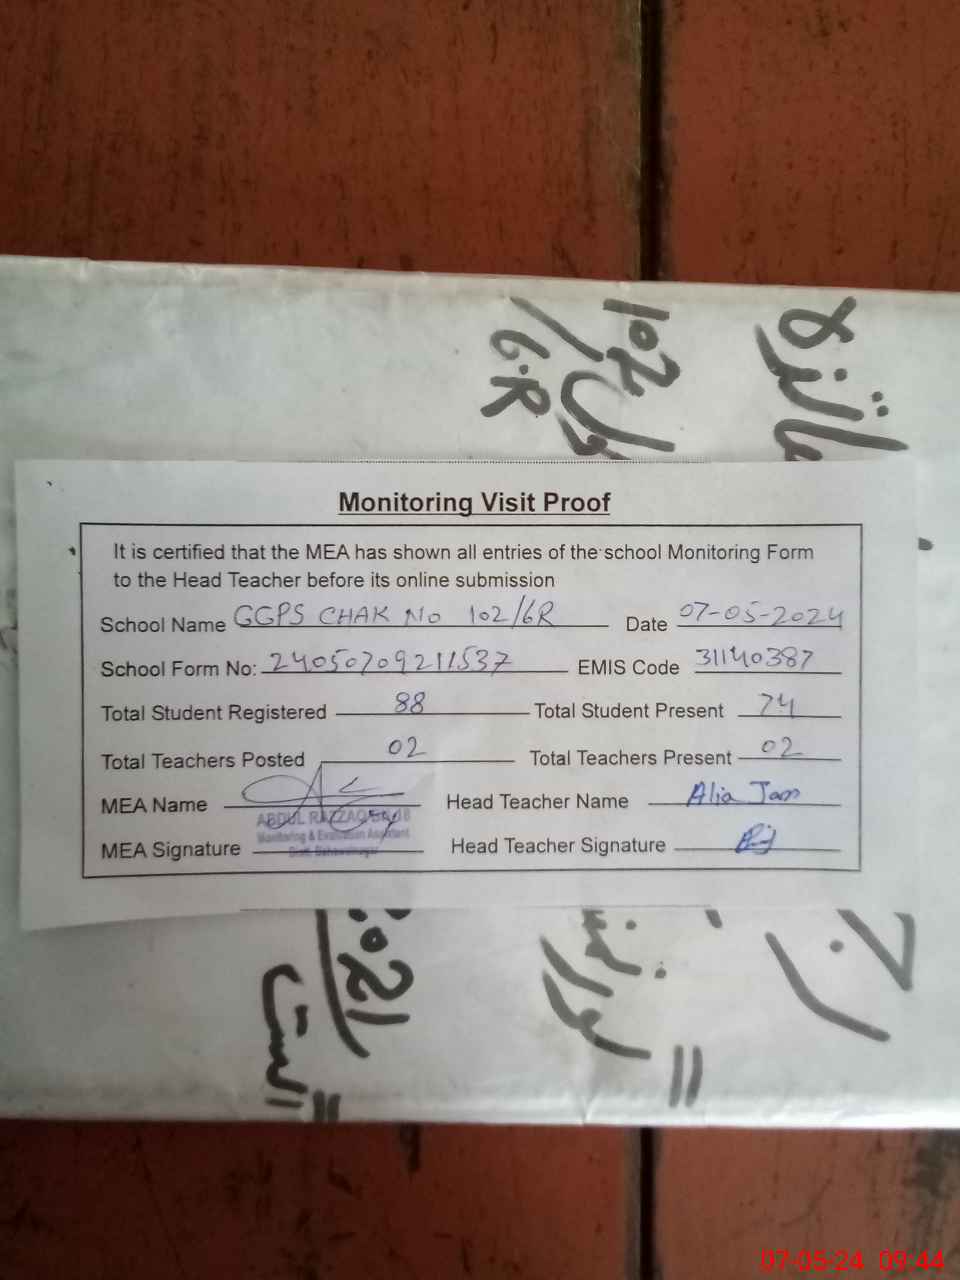 102
/6.R
Monitoring Visit Proof
It is certified that the MEA has shown all entries of the school Monitoring Form
to the Head Teacher before its online submission
School Name GGPS CHAK No 102/6R Date 07-05-2024
School Form No: 24050709211537 EMIS Code 31140387
Total Student Registered 88 Total Student Present 74
Total Teachers Posted 02 Total Teachers Present 02
MEA Name Head Teacher Name Alia Jam
ABDUL RAZZAQ
Monitoring & Evaluation Assistant
MEA Signature Head Teacher Signature
Distt. Bahawalnagar
2021
اگست
07-05-24 09:44